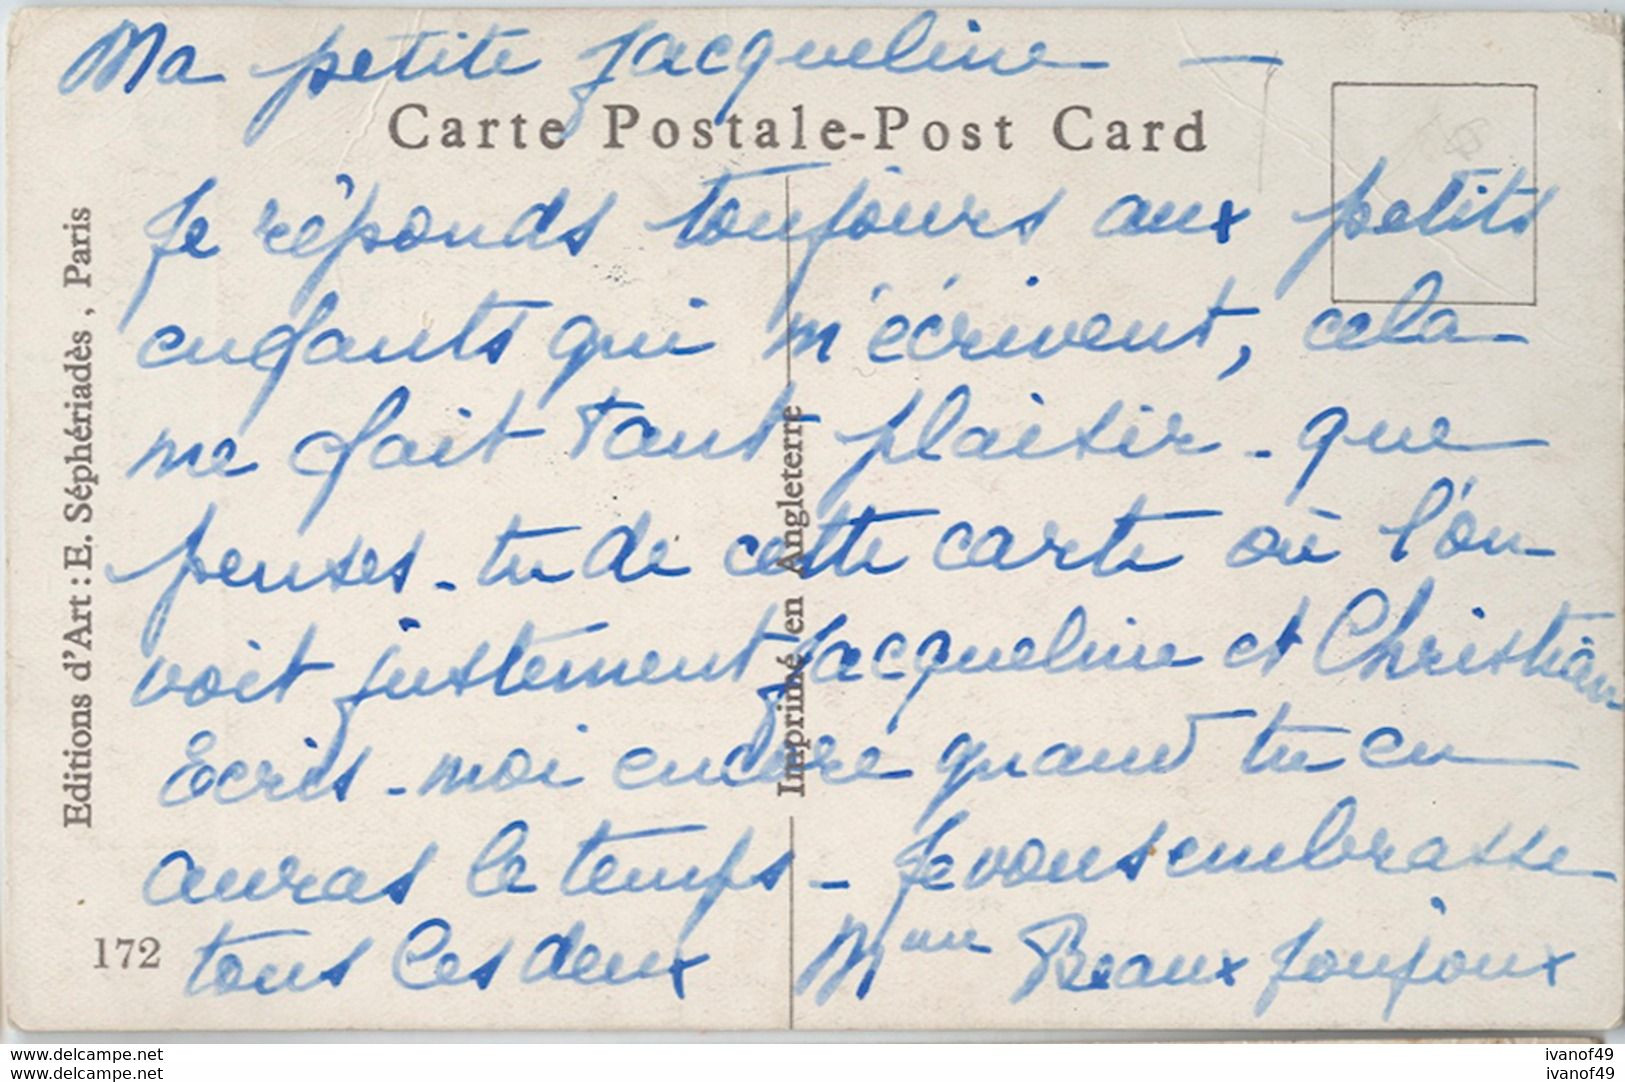 Ma petite Jacqueline —
Carte Postale-Post Card
Je réponds toujours aux petits
enfants qui m'écrivent, cela
me fait tant plaisir - que
penses-tu de cette carte où l'on
voit justement Jacqueline et Christian
Ecris-moi encore quand tu en
auras le temps - Je vous embrasse
tous les deux Mme Beaux Joujoux
Editions d'Art : E. Séphériadès, Paris
Imprimé en Angleterre
172
www.delcampe.net
www.delcampe.net
ivanof49
ivanof49